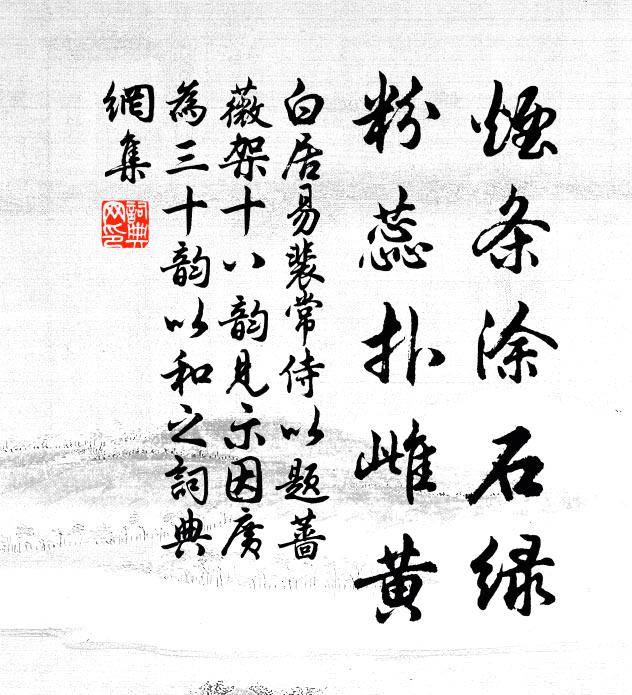 煙条涂石绿
粉蕊扑雌黄
白居易裴常侍以题蔷
薇架十八韵见示因广
為三十韵以和之詞典
網集
詞典
网印